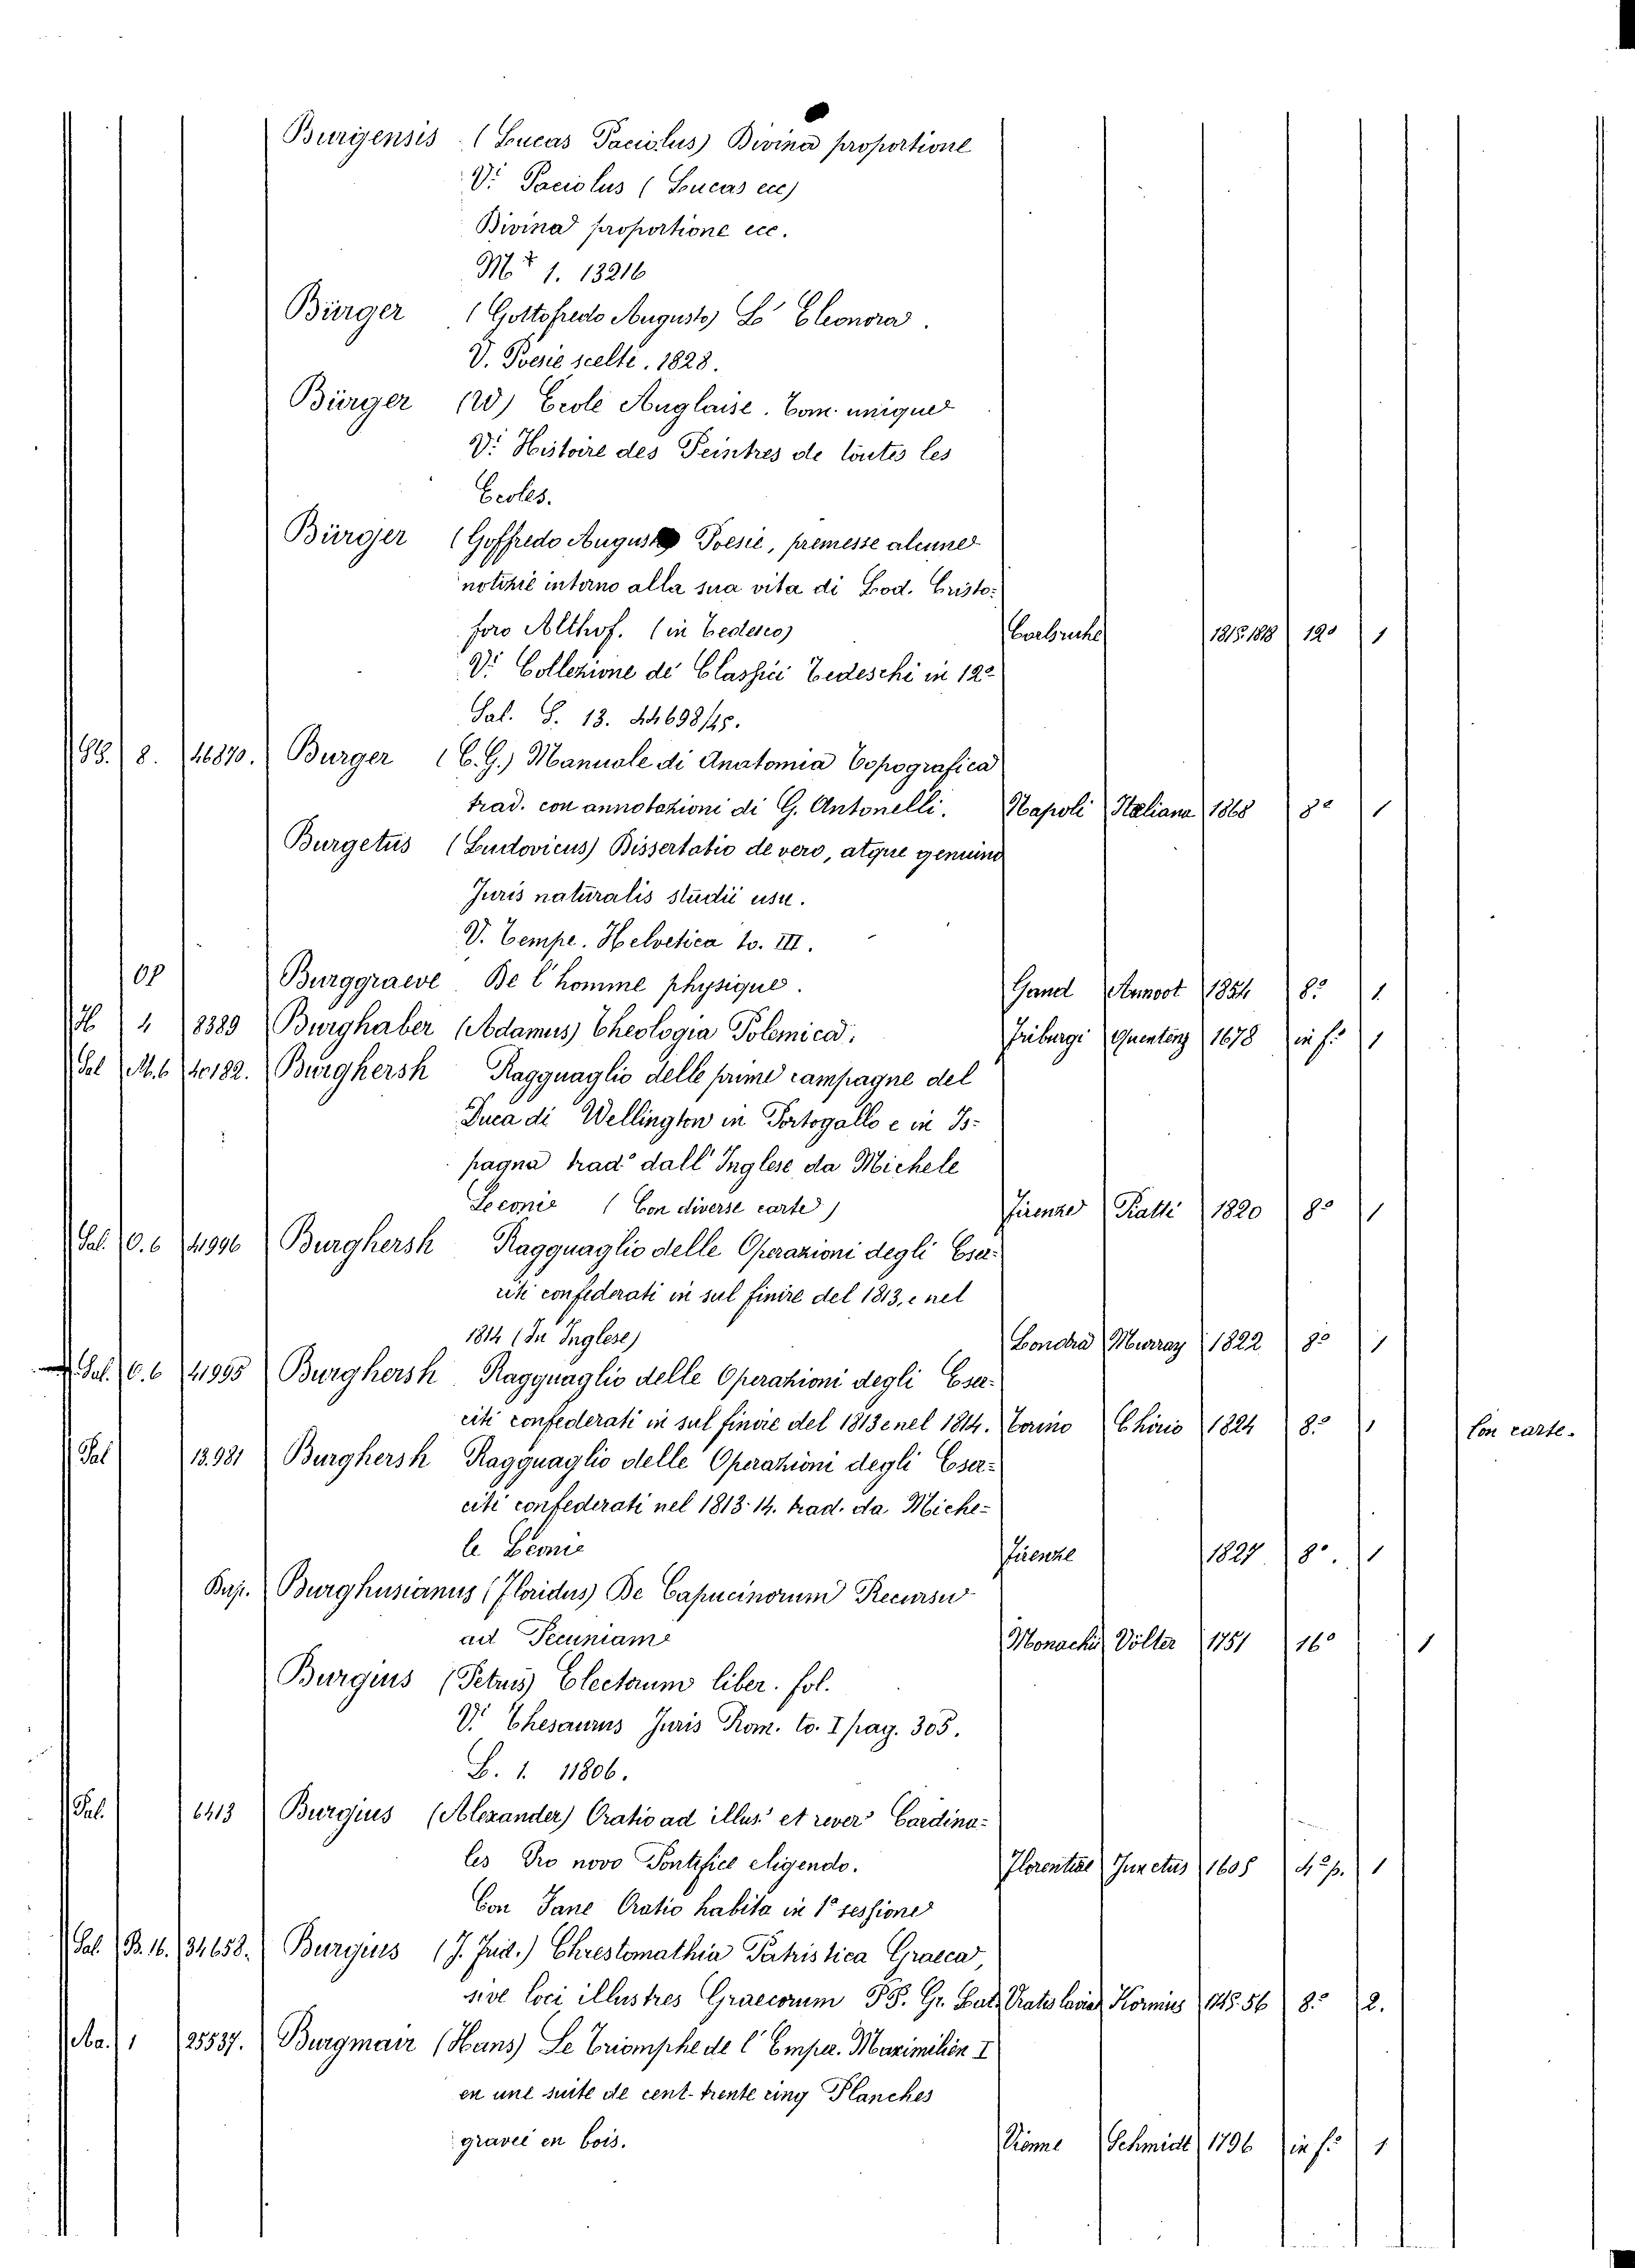 Burgensis (Lucas Paciolus) Divina proportione
V: Paciolus (Lucas ecc)
Divina proportione ecc.
M 1. 13216
Bürger (Gottofredo Augusto) L' Eleonora.
V. Poesie scelte. 1828.
Bürger (W) Ecole Anglaise. Tom. unique
V: Histoire des Peintres de toutes les
Ecoles.
Bürger (Goffredo Augusto) Poesie, premesse alcune
notizie intorno alla sua vita di Lod. Cristo-
foro Althof. (in Tedesco) Carlsruhe 1815.1818 12º 1
V: Collezione de Classici Tedeschi in 12º
Sal. S. 13. 44698/45.
8. 46870. Burger (C. G.) Manuale di Anatomia Topografica
trad. con annotazioni di G. Antonelli. Napoli Italiana 1868 8º 1
Burgetus (Ludovicus) Dissertatio de vero, atque genuino
Juris naturalis studii usu.
V. Tempe. Helvetica to. III.
OP Burggraeve De l'homme physique. Gand Annoot 1854 8º 1
H 4 8389 Burghaber (Adamus) Theologia Polemica. Friburgi Quentenz 1678 in fº 1
Sal M. 6 40182. Burghersh Ragguaglio delle prime campagne del
Duca di Wellington in Portogallo e in Is-
pagna trad dall' Inglese da Michele
Leconie (Con diverse carte) Firenze Piatti 1820 8º 1
Sal. O. 6 41996 Burghersh Ragguaglio delle Operazioni degli Eser-
citi confederati in sul finire del 1813, e nel
1814 (In Inglese) Londra Murray 1822 8º 1
Sal. O. 6 41995 Burghersh Ragguaglio delle Operazioni degli Eser-
citi confederati in sul finire del 1813 e nel 1814. Torino Chirio 1824 8º 1 Con carte.
Sal 13.981 Burghersh Ragguaglio delle Operazioni degli Eser-
citi confederati nel 1813-14. trad. da Miche-
le Leonie Firenze 1827 8º. 1
Burghusianus (Floridus) De Capucinorum Recursu
ad Pecuniam Monachii Völter 1751 16º 1
Burgius (Petrus) Electorum liber. fol.
V: Thesaurus Juris Rom. to. I pag. 305.
L. 1. 11806.
Sal. 6413 Burgius (Alexander) Oratio ad illus. et rever. Cardina-
les Pro novo Pontifice eligendo. Florentiae Junctus 1605 4º p. 1
Con Jane Oratio habita in 1ª sessione
Sal. B. 16. 34658. Burgius (J. Jud.) Chrestomathia Patristica Graeca,
sive loci illustres Graecorum PP. Gr. Lat. Vratislaviae Kornius 1145.56 8º 2.
1 25537. Burgmair (Hans) Le Triomphe de l'Emper. Maximilien I
en une suite de cent-trente cinq Planches
gravée en bois. Vienne Schmidt 1796 in fº 1